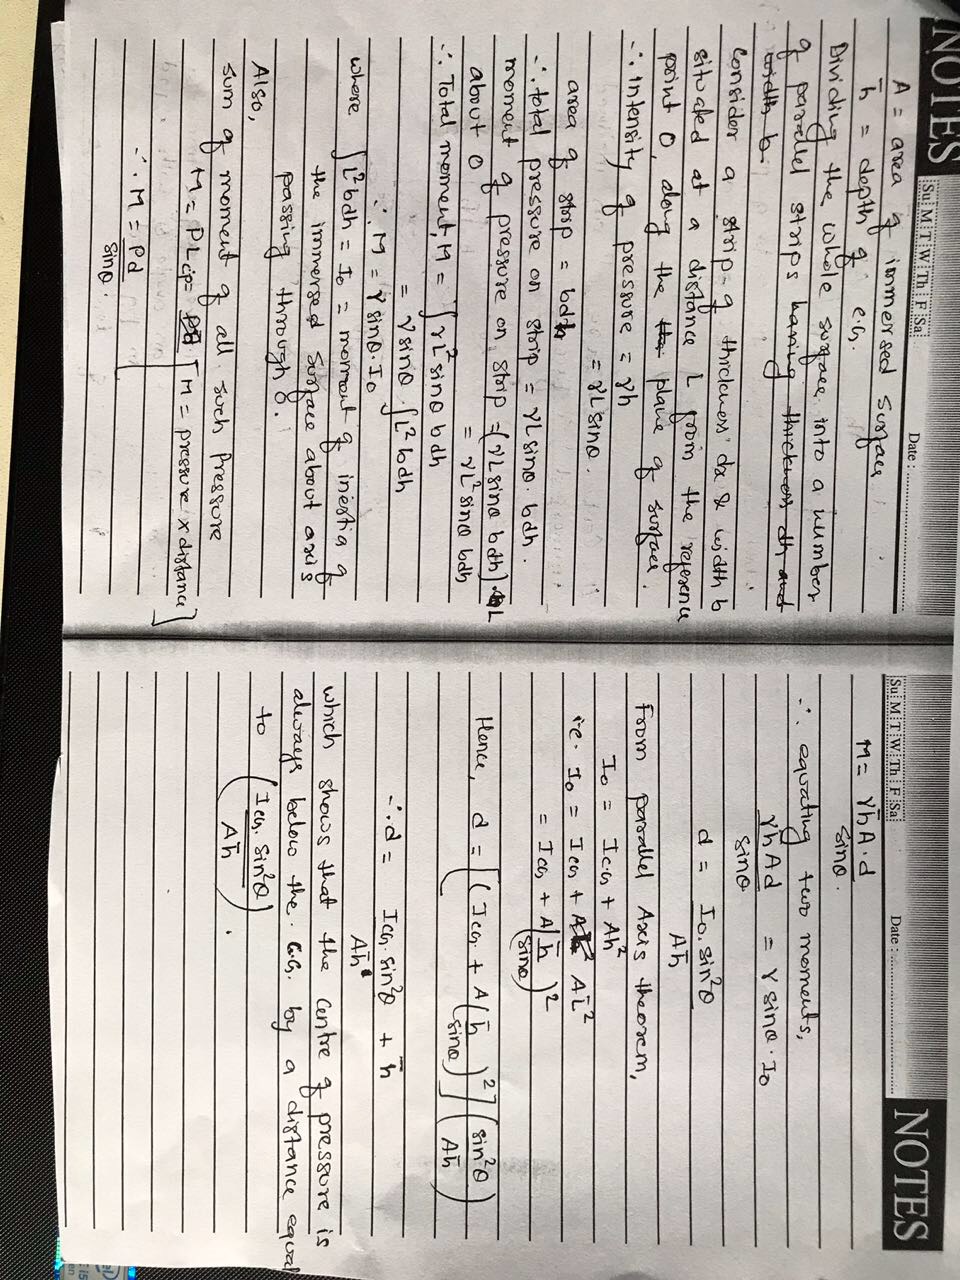 NOTES
Su M T W Th F Sa
Date :
A = area of immersed surface
h̄ = depth of c.g.
Dividing the whole surface into a number
of parallel strips having thickness dh and
width b.
Consider a strip of thickness dx & width b
situated at a distance L from the reference
point O, along the plane of surface.
∴ intensity of pressure = γh
= γL sinθ.
area of strip = bdh
∴ total pressure on strip = γL sinθ. bdh.
moment of pressure on strip = (γL sinθ bdh).L
about O
= γL² sinθ bdh
∴ Total moment, M = ∫γL² sinθ bdh
= γ sinθ ∫L² bdh
∴ M = γ sinθ. I₀
where ∫L²bdh = I₀ = moment of inertia of
the immersed surface about axis
passing through O.
Also,
sum of moment of all such pressure
M = P L cp [M = pressure x distance]
∴ M = Pd / sinθ.
Su M T W Th F Sa
Date :
NOTES
M = γh̄A.d / sinθ.
∴ equating two moments,
γhAd / sinθ = γ sinθ. I₀
d = I₀. sin²θ / Ah̄
From parallel Axis theorem,
I₀ = I c.G + Ah²
i.e. I₀ = I cG + AL̄²
= I cG + A(h̄ / sinθ)²
Hence, d = [(I cG + A(h̄ / sinθ)²] (sin²θ / Ah̄)
∴ d = I cG. sin²θ / Ah̄ + h̄
which shows that the centre of pressure is
always below the c.G. by a distance equal
to (I cG. sin²θ / Ah̄).